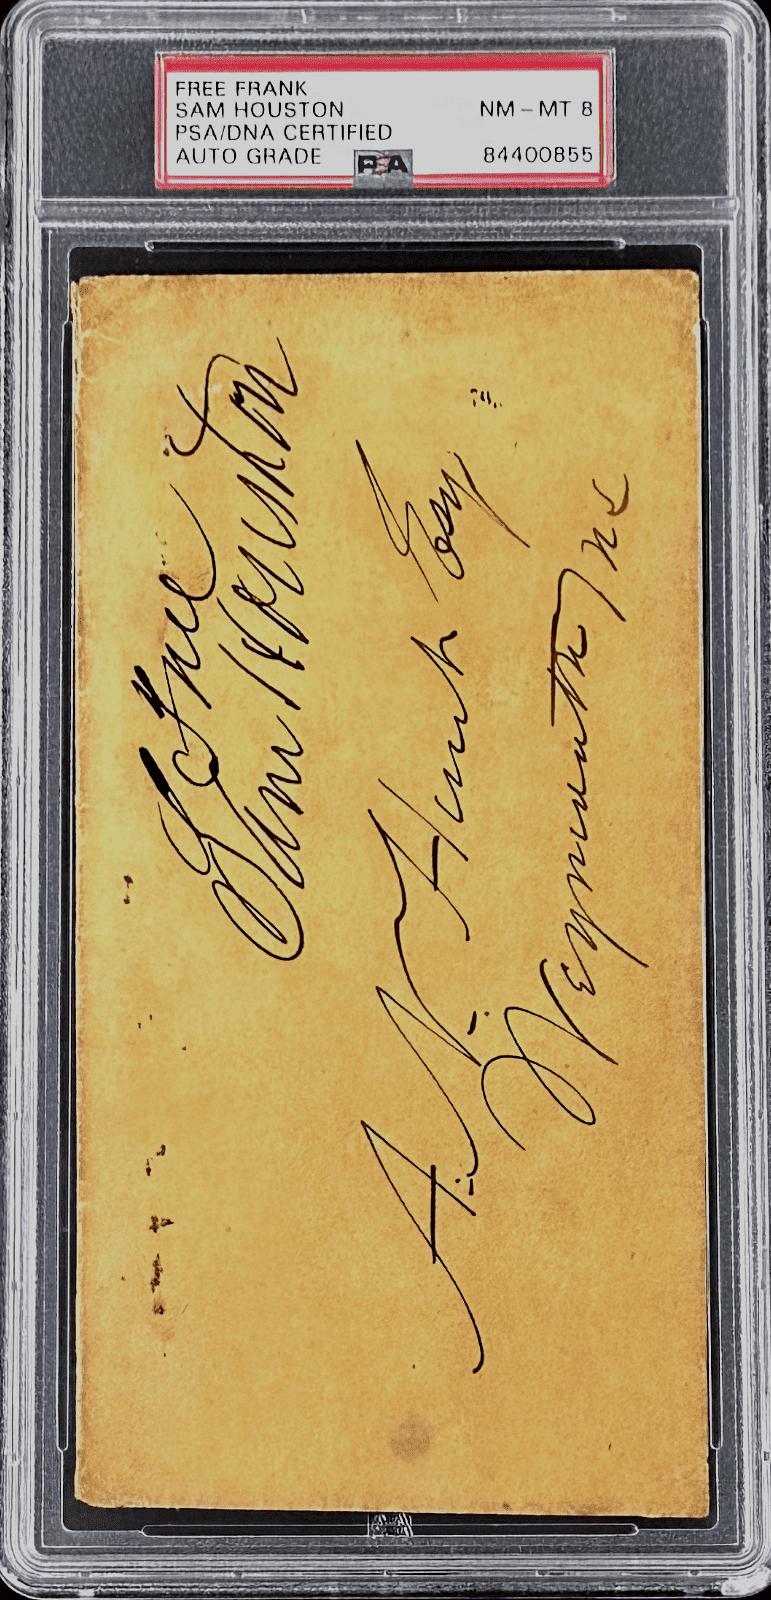 FREE FRANK
SAM HOUSTON NM-MT 8
PSA/DNA CERTIFIED
AUTO GRADE PSA 84400855
Free
Sam Houston
A. N. Hunt Esq
Weymouth Ms